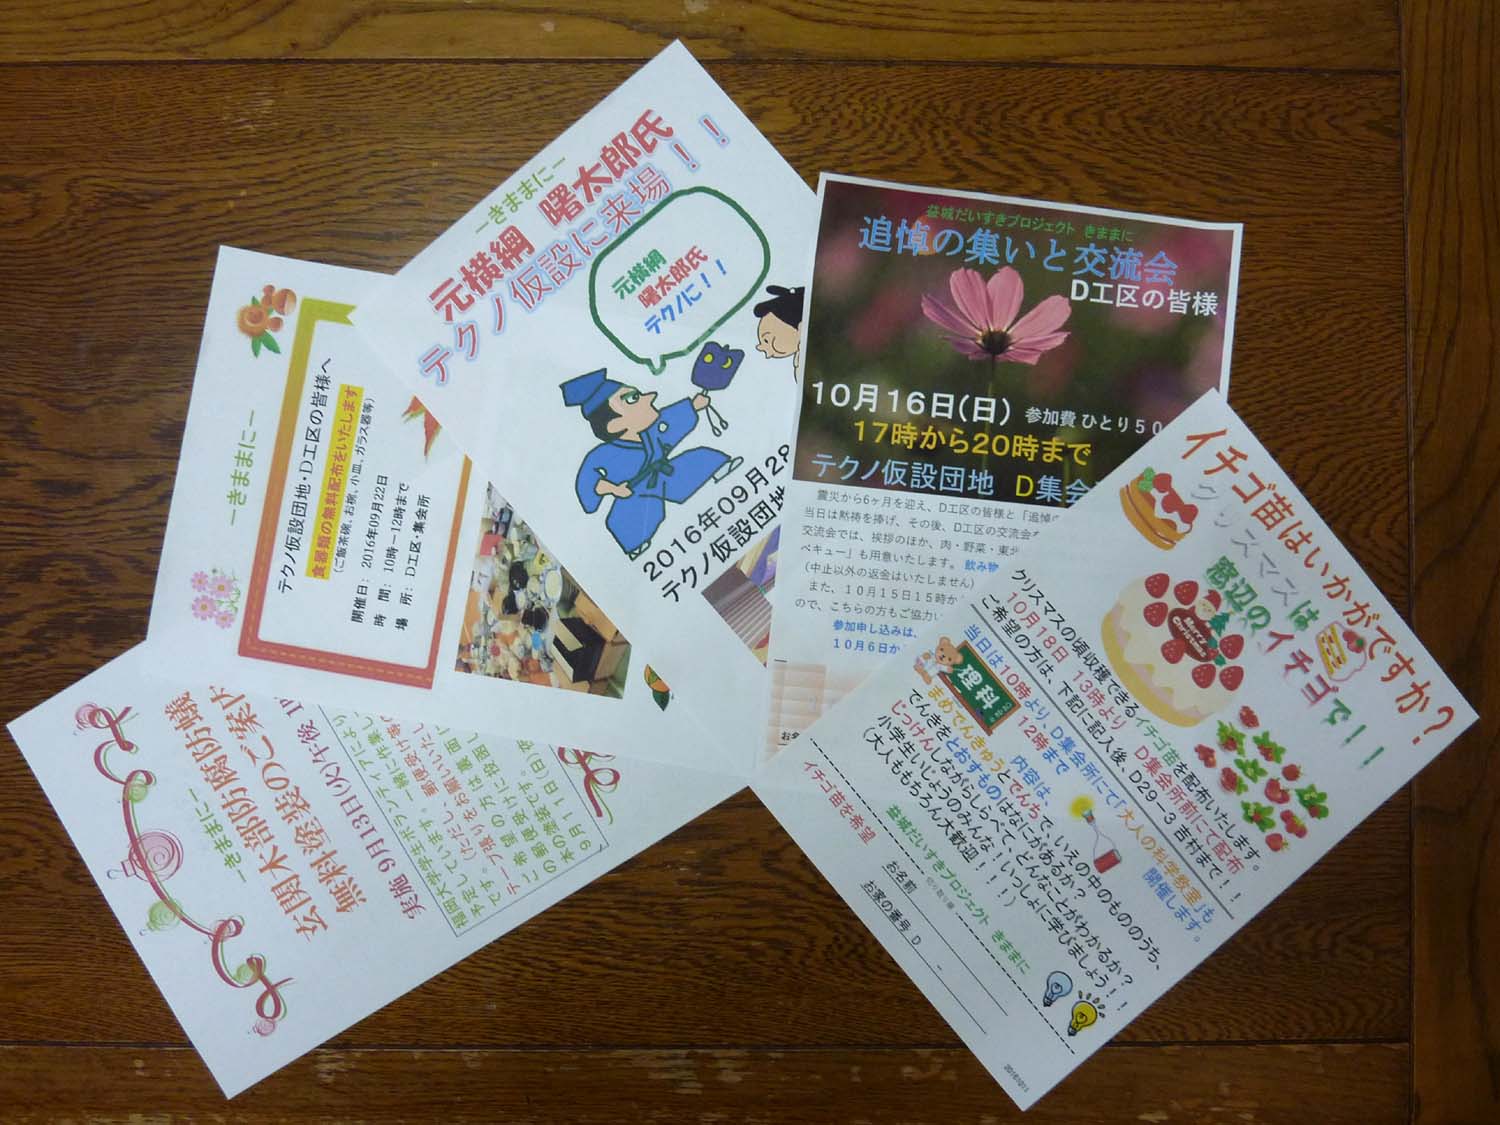 －きままに－
玄関木部防腐防蟻
無料塗装のご案内
実施 9月13日(火)午後 1
福岡大学学生ボランティアにより
予定しています。一緒に作業し
です。(ただし、郵便受け等
テープ張りをお願いいたし
ご希望の方は裏面に
の郵便受けに投函し
木の塗装です。
9月11日(日)
－きままに－
テクノ仮設団地・D工区の皆様へ
食器類の無料配布をいたします
(ご飯茶碗、お椀、小皿、ガラス器等)
開催日: 2016年09月22日
時 間: 10時－12時まで
場 所: D工区・集会所
－きままに－
元横綱 曙太郎氏
テクノ仮設に来場！！
元横綱
曙太郎氏
テクノに！！
2016年09月28
テクノ仮設団地
益城だいすきプロジェクト きままに
追悼の集いと交流会
D工区の皆様
10月16日(日) 参加費 ひとり５０
17時から20時まで
テクノ仮設団地 D集会
震災から6ヶ月を迎え、D工区の皆様と「追悼の
当日は黙祷を捧げ、その後、D工区の交流会を
交流会では、挨拶のほか、肉・野菜・東北
ベキュー」も用意いたします。飲み物
(中止以外の返金はいたしません)
また、１０月１５日１５時か
ので、こちらの方もご協力い
参加申し込みは、
１０月６日か
イチゴ苗はいかがですか？
クリスマスは
窓辺のイチゴで！！
Merry Christmas
クリスマスの頃収穫できるイチゴ苗を配布いたします。
10月18日 13時より D集会所前にて配布
ご希望の方は、下記に記入後、D29－3 吉村まで！！
理科
当日は10時より、D集会所にて「大人の科学教室」も
12時まで 開催します。
内容は、
まめでんきゅうとでんちで、いえの中のもののうち、
でんきをとおすものはなにがあるか？
じっけんしながらしらべて、どんなことがわかるか？
小学生いじょうのみんな！！いっしょに学びましょう！！
(大人ももちろん大歓迎！！！！)
益城だいすきプロジェクト きままに
切り取り線
イチゴ苗を希望
お名前
お家の番号 D －
20161011